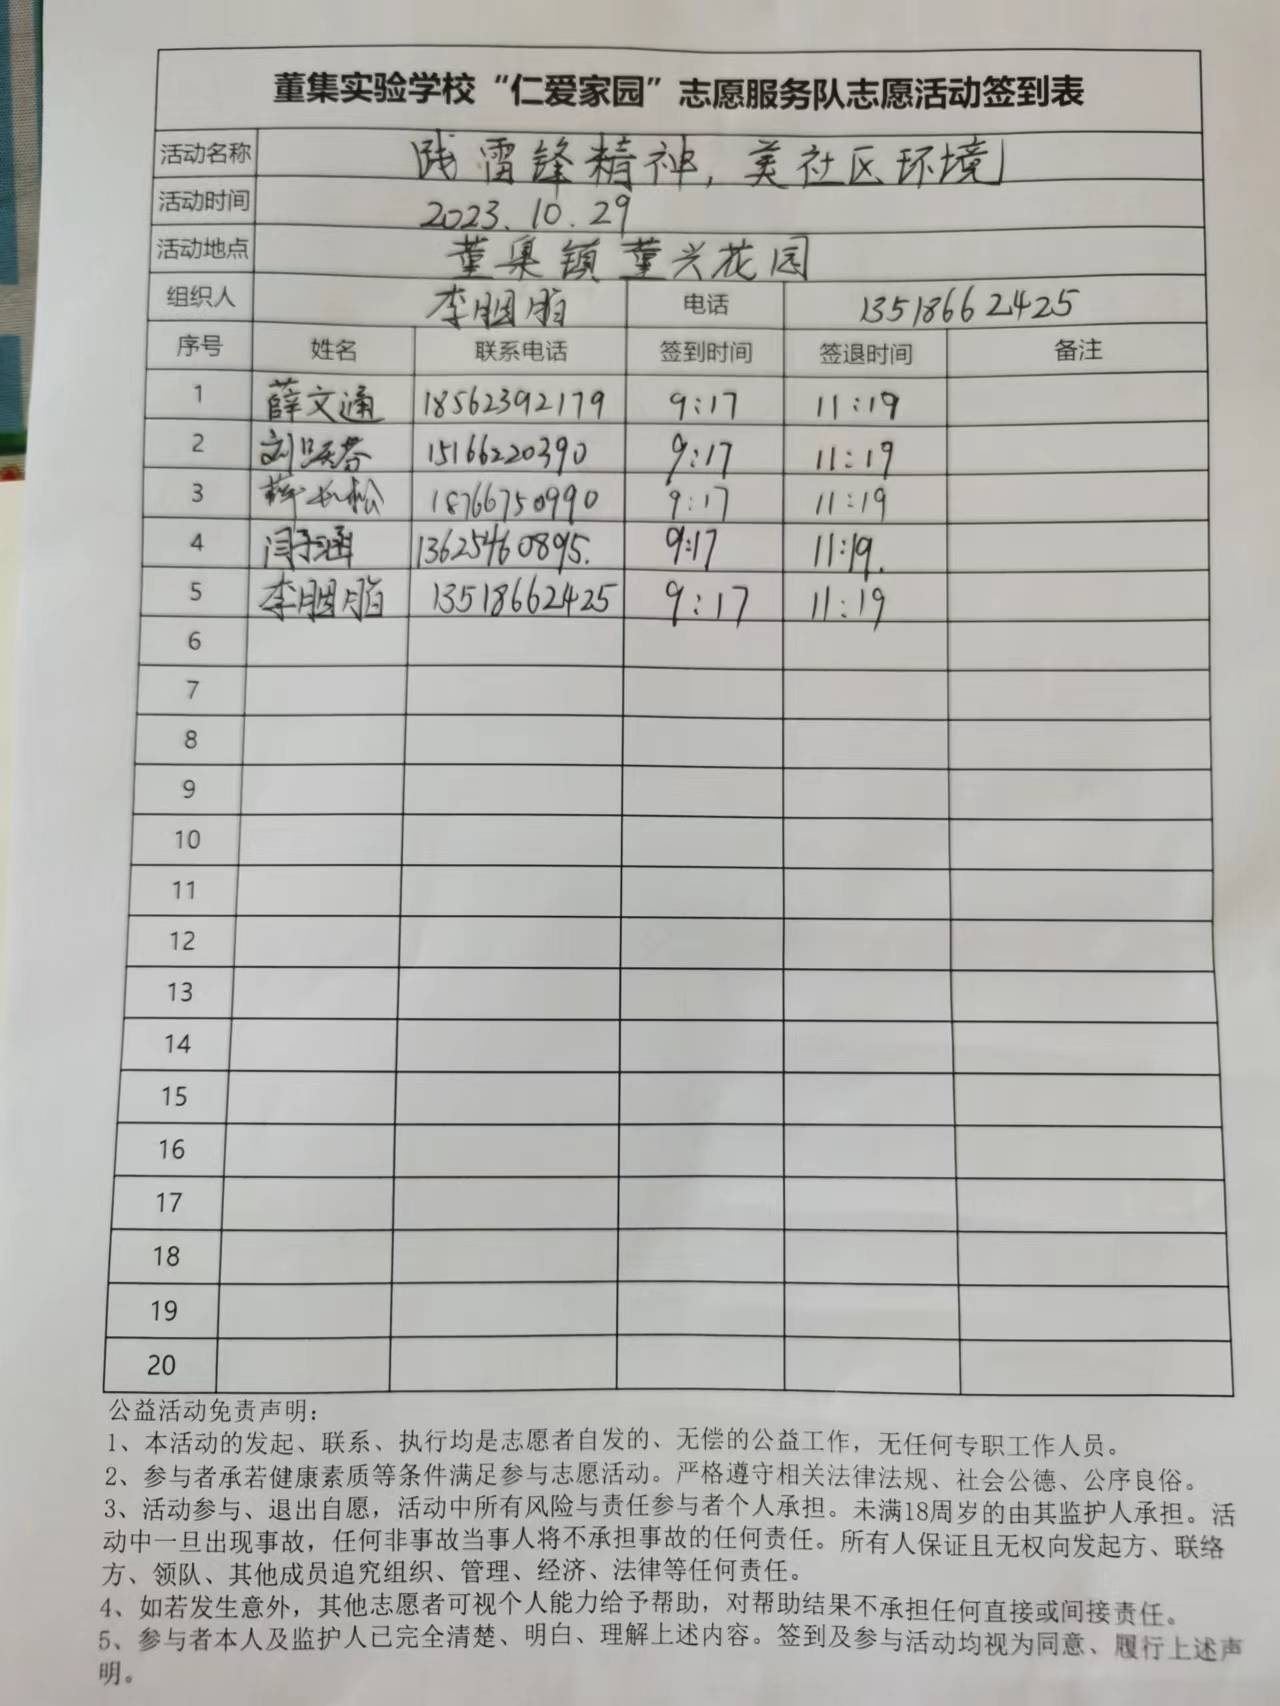 董集实验学校“仁爱家园”志愿服务队志愿活动签到表
活动名称 践雷锋精神，美社区环境
活动时间 2023.10.29
活动地点 董集镇董兴花园
组织人 李胭脂 电话 13518662425
序号 姓名 联系电话 签到时间 签退时间 备注
1 薛文通 18562392179 9:17 11:19
2 刘 15166220390 9:17 11:19
3 薛长松 18766750990 9:17 11:19
4 闫子涵 13625460895. 9:17 11:19.
5 李胭脂 13518662425 9:17 11:19
6
7
8
9
10
11
12
13
14
15
16
17
18
19
20
公益活动免责声明：
1、本活动的发起、联系、执行均是志愿者自发的、无偿的公益工作，无任何专职工作人员。
2、参与者承若健康素质等条件满足参与志愿活动。严格遵守相关法律法规、社会公德、公序良俗。
3、活动参与、退出自愿，活动中所有风险与责任参与者个人承担。未满18周岁的由其监护人承担。活
动中一旦出现事故，任何非事故当事人将不承担事故的任何责任。所有人保证且无权向发起方、联络
方、领队、其他成员追究组织、管理、经济、法律等任何责任。
4、如若发生意外，其他志愿者可视个人能力给予帮助，对帮助结果不承担任何直接或间接责任。
5、参与者本人及监护人已完全清楚、明白、理解上述内容。签到及参与活动均视为同意、履行上述声
明。